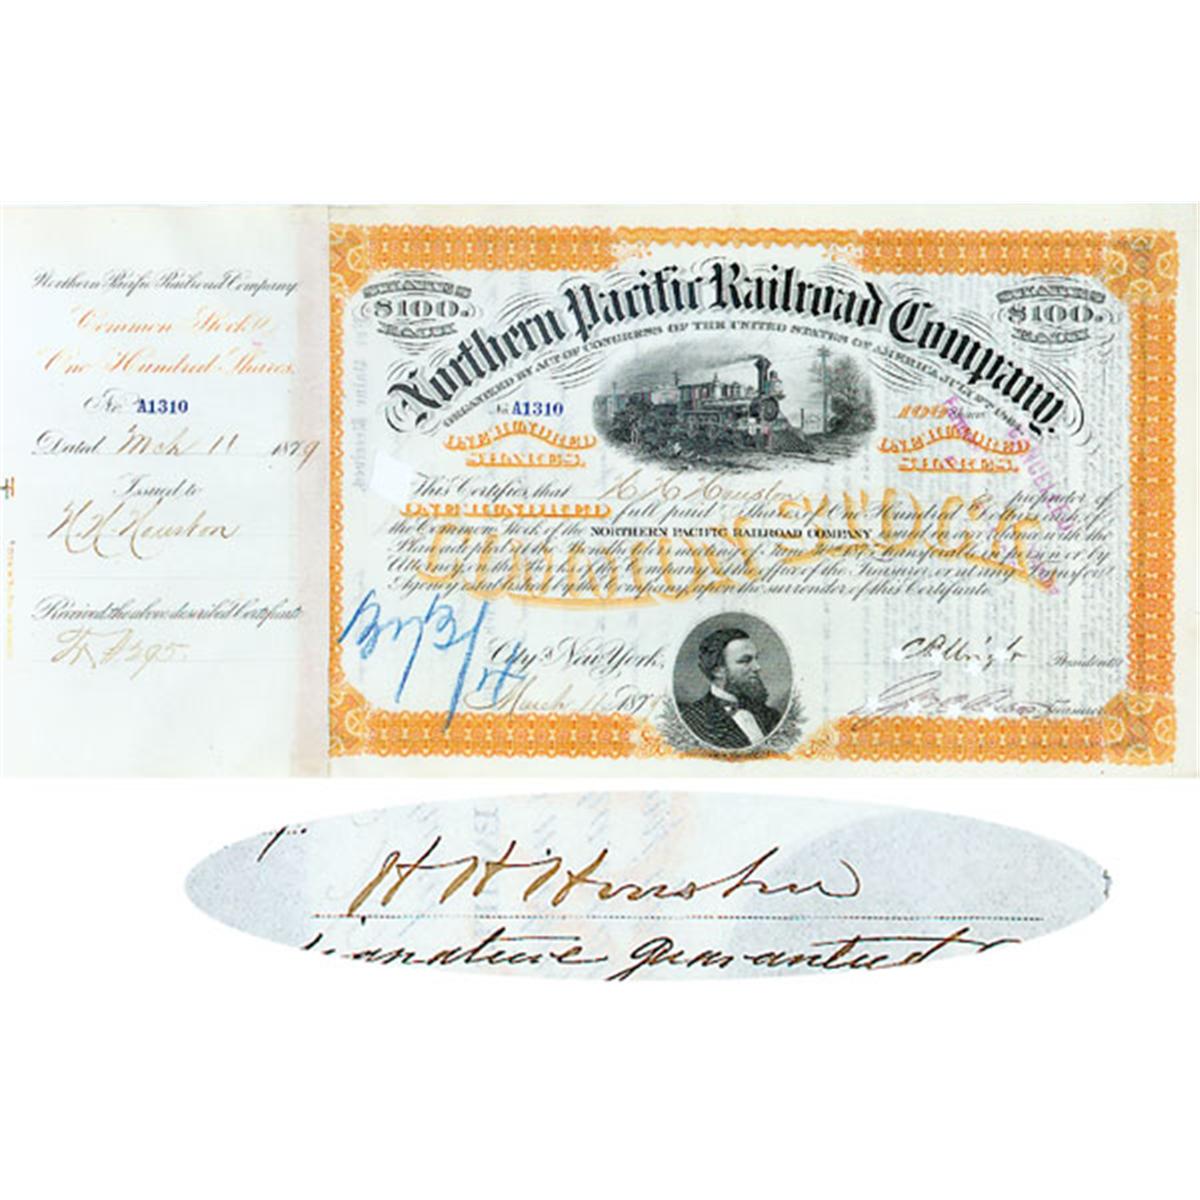 Northern Pacific Railroad Company.
Common Stock
One Hundred Shares.
No. A1310
Dated Mch 11 1879
Issued to
H. H. Houston
Received the above described Certificate
SHARES
$100.
EACH
Northern Pacific Railroad Company.
ORGANIZED BY ACT OF CONGRESS OF THE UNITED STATES OF AMERICA, JULY 2ND, 1864.
SHARES
$100.
EACH
No. A1310
ONE HUNDRED
SHARES.
100 Shares
ONE HUNDRED
SHARES.
This Certifies that H H Houston is proprietor of
ONE HUNDRED full paid Shares of One Hundred Dollars each of
the Common Stock of the NORTHERN PACIFIC RAILROAD COMPANY
COMMON STOCK
Attorney on the Books of the Company at the office of the Treasurer, or at any Transfer
Agency established by the Company, upon the surrender of this Certificate.
City of New York,
March 11 1879
C B Wright President
Treasurer
H H Houston
Signature guaranteed